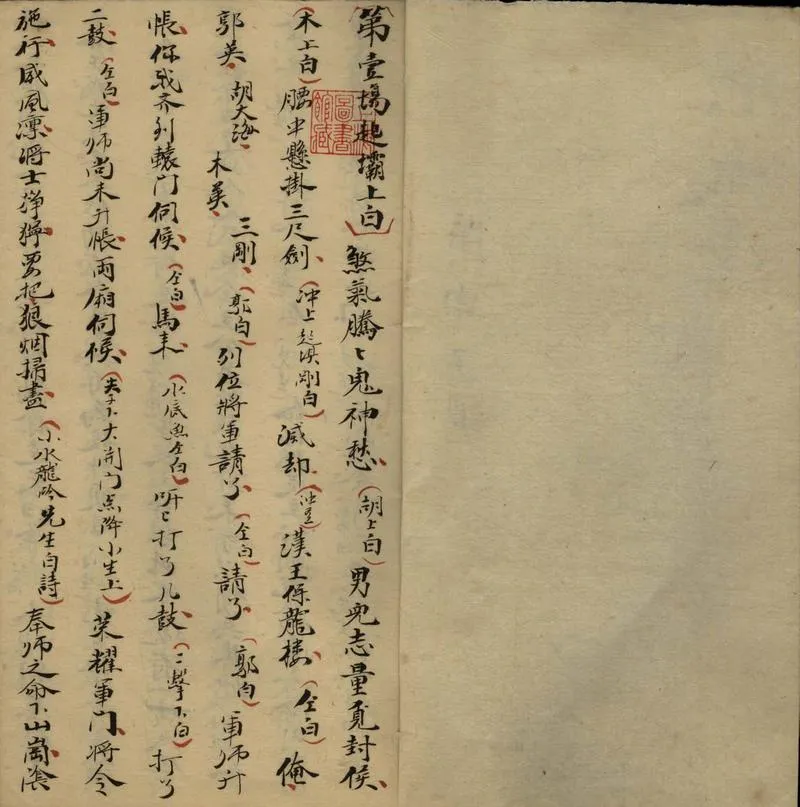 （第壹場起壩上白）煞氣騰〻鬼神愁（胡上白）男児志量覓封侯
（木上白）腰中懸掛三尺劍（沖上起漢剛白）滅却（沖）漢王保龍楼（仝白）俺
郭英 胡大海 木英 三剛（郭白）列位將軍請了（仝白）請了（郭白）軍师升
帳你我齐列轅门伺候（仝白）馬来（水底魚仝白）听〻打了几鼓（二擊下白）打了
二鼓（仝白）軍师尚未升帳両廂伺候（大開门点降小生上）荣耀軍门将令
施行威风凛将士狰狞要把狼烟掃盡（小水龍吟先生白詩）奉师之命下山崗
圖書